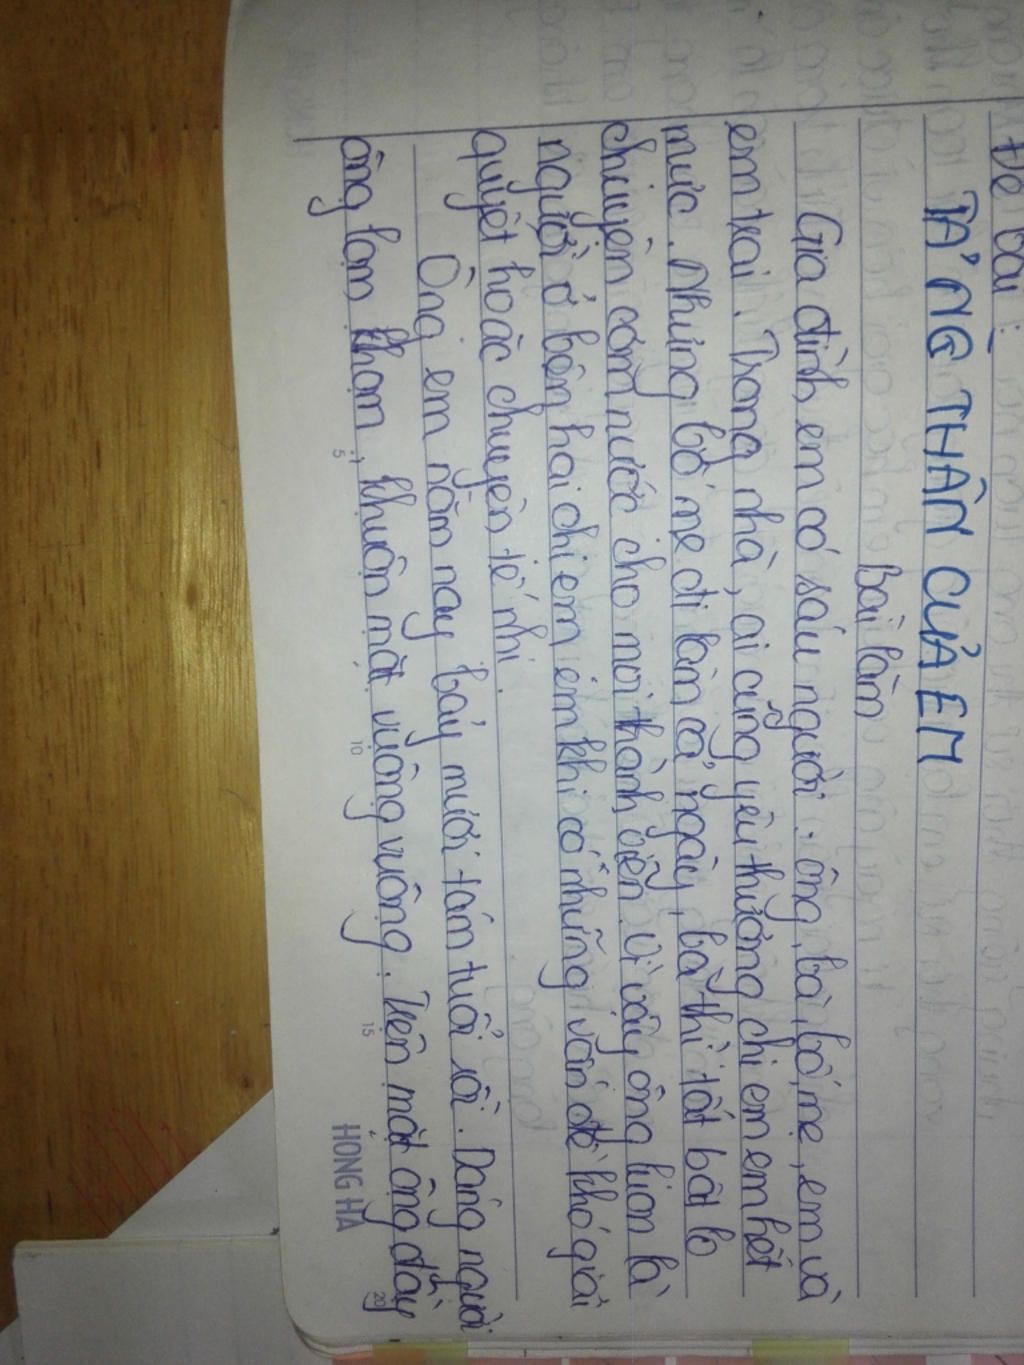 Đề bài:
TẢ NG THÂN CỦA EM
Bài làm
Gia đình em có sáu người: ông, bà, bố, mẹ, em và
em trai. Trong nhà, ai cũng yêu thương chị em em hết
mực. Nhưng bố mẹ đi làm cả ngày, bà thì tất bật lo
chuyện cơm nước cho mọi thành viên. Vì vậy, ông luôn là
người ở bên hai chị em em khi có những vấn đề khó giải
quyết hoặc chuyện tế nhị.
Ông em năm nay bảy mươi tám tuổi rồi. Dáng người
ông lom khom, khuôn mặt vuông vuông. Trên mặt ông đầy
5 10 15 20
HỒNG HÀ